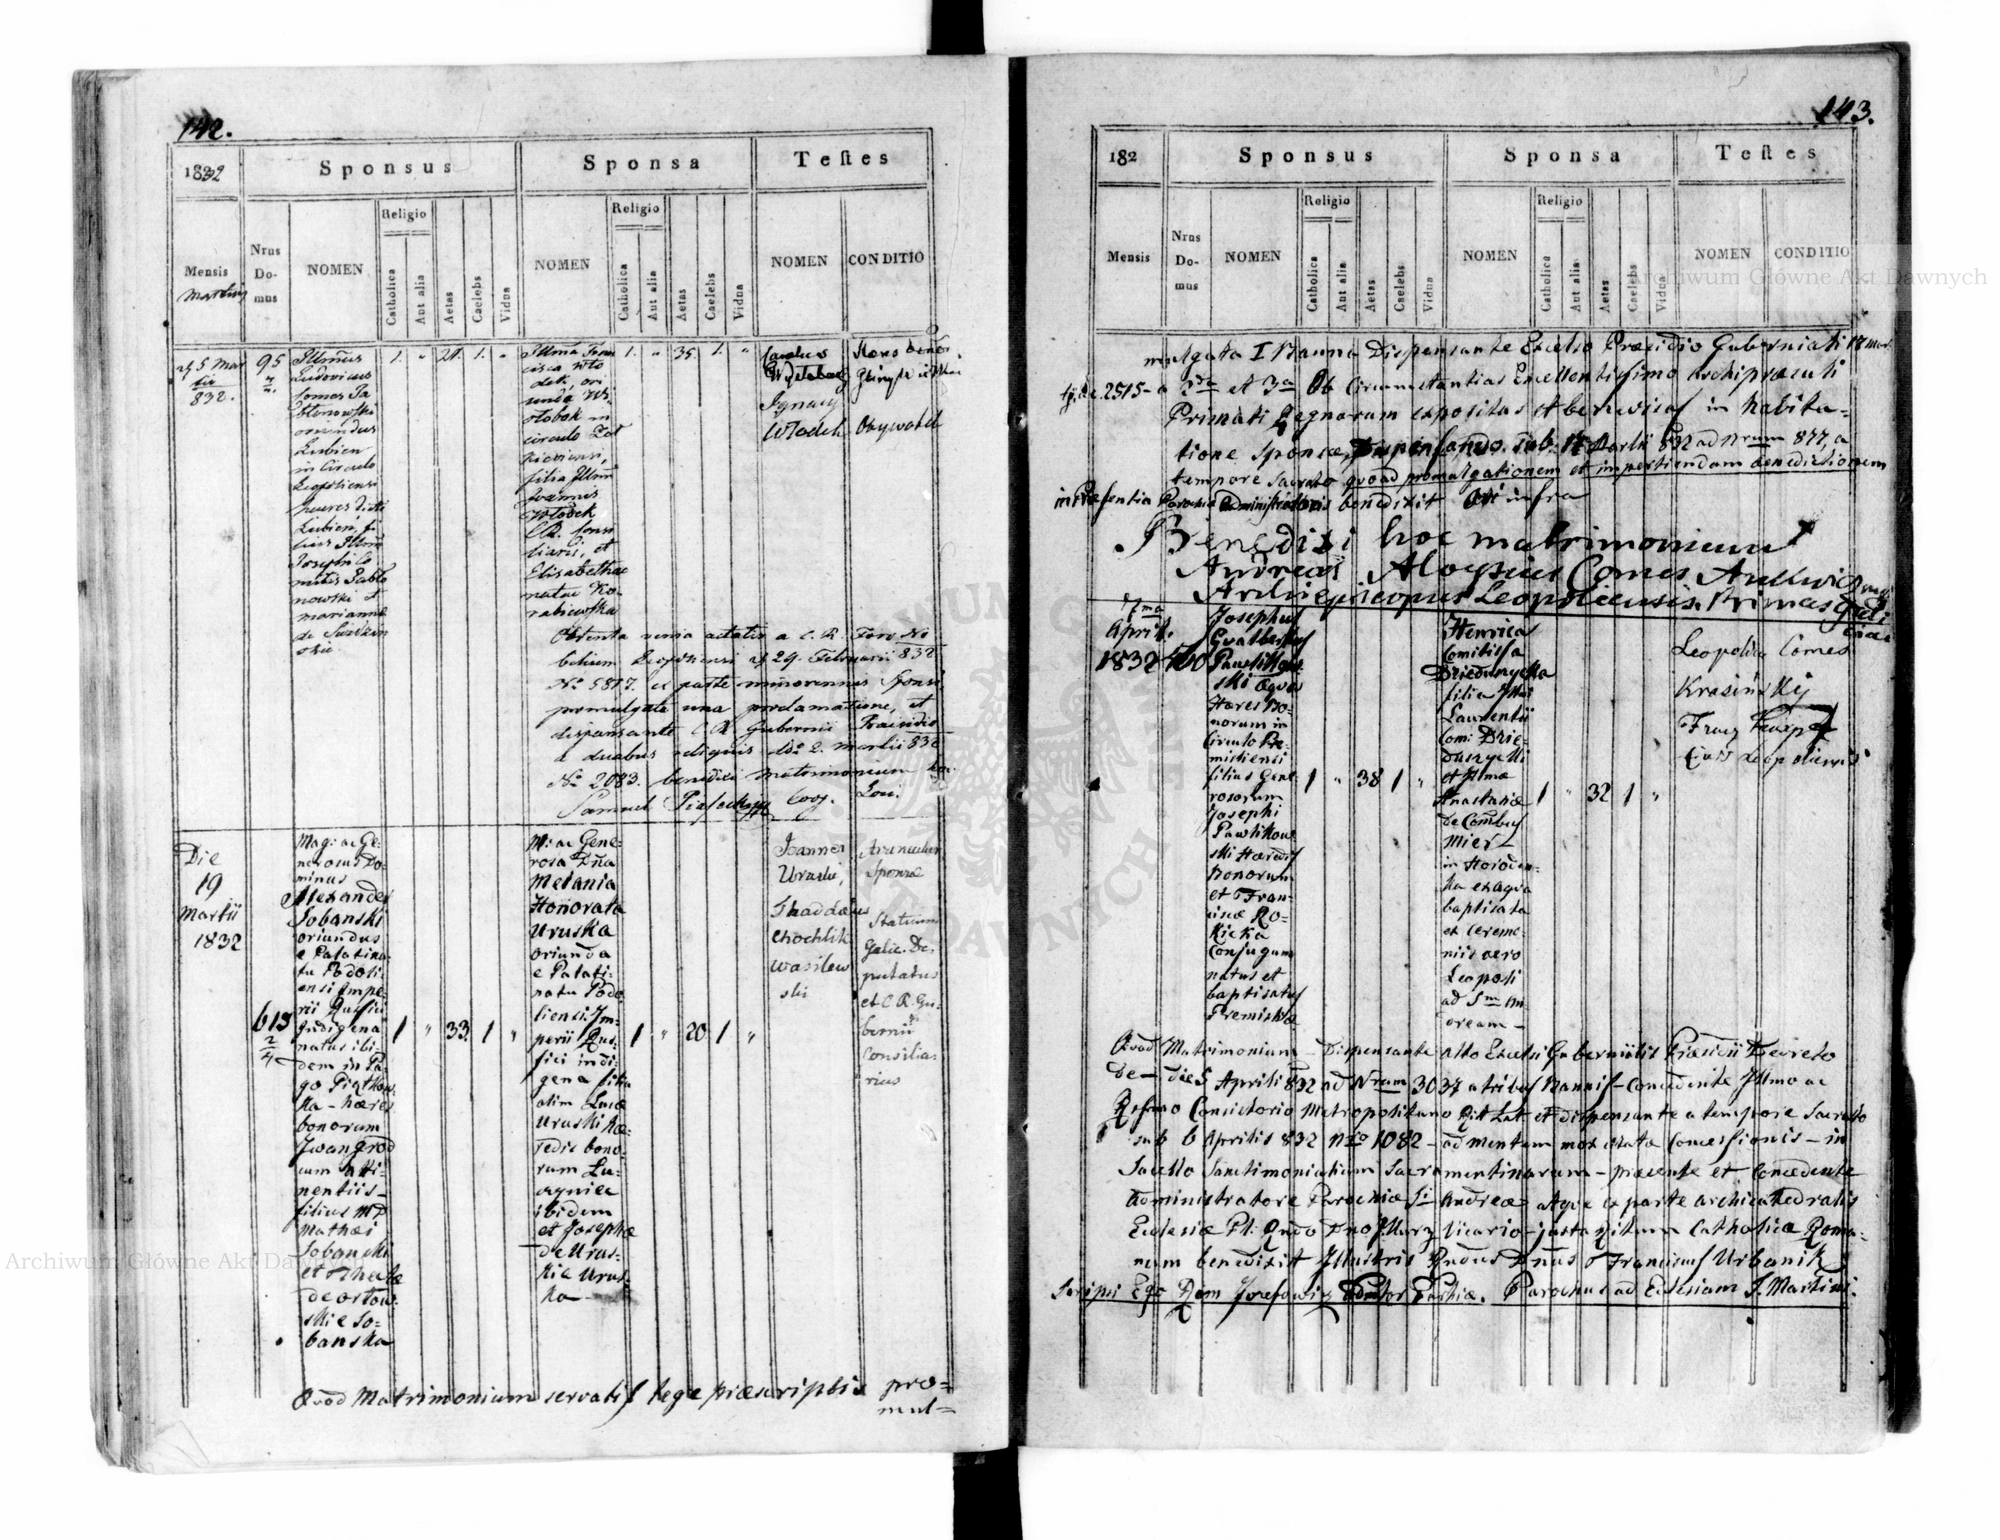 142.
1832
Sponsus
Sponsa
Testes
Mensis
Martius
Nrus
Do-
mus
NOMEN
Religio
Catholica
Aut alia
Aetas
Caelebs
Vidua
NOMEN
Religio
Catholica
Aut alia
Aetas
Caelebs
Vidua
NOMEN
CONDITIO
5 Mar
832.
95
Illmus
Ludovicus
Comes Ja
błonowski
oriundus
Lubien
in Circulo
Leopoliensi
heures dicti
Lubien, fi
lius Illmi
Josephi Co
mitis Jabło
nowski et
Marianna
de
1.
"
21.
1.
"
Illma Fran
cisca Wło
dek, ori
unda
in
circulo Zol
kieviensi,
filia Illmi
Joannes
Włodek
C.R. Consi
liarii, et
Elisabethae
natae
1.
"
35.
1.
"
Carolus
Ignacy
Włodek
Obywatel
Obtenta venia aetatis a C. R. Foro No
bilium Leopoliensi 29. Februarii 832
No 5817. ex parte minorennis Sponsi,
promulgata una proclamatione, et
dispensante C. R. Gubernii Praesidio
a duabus reliquis ddo 2. Martii 832
No 2083. benedixi matrimonium hoc
Samuel Coop. Loci.
Die
19
Martii
1832
615
2/4
Mag: ac Ge-
nerosus Do-
minus
Alexander
Sobanski
oriundus
e Palatina-
tu Podoli-
ensi Impe-
rii Russici
Indigena
natus ibi-
dem in Pa-
go Piątkow-
ka - haeres
bonorum
Iwangrod
cum atti-
nentiis -
filius
Mathaei
Sobanski
et Theclae
de Ortow-
skie So-
banska
1
"
33.
1
"
M: ac Gene-
rosa Dna
Melania
Honorata
Uruska
oriunda
e Palati-
natu Podo
liensi Im-
perii Rus-
sici indi-
gena filia
olim Lucae
Uruski hae-
redis bono-
rum Lu-
ibidem
et Josephae
de Urus-
kie Urus-
ka -
1
"
20
1
"
Joannes
Uruski,
Thaddaeus
Wasilew
ski
Avunculus
Sponsae
Statuum
Galic. De-
putatus
et C. R. Gu-
bernii
Consilia-
rius
Quod Matrimonium servatis lege praescriptis pro-
mul-
143.
182
Sponsus
Sponsa
Testes
Mensis
Nrus
Do-
mus
NOMEN
Religio
Catholica
Aut alia
Aetas
Caelebs
Vidua
NOMEN
Religio
Catholica
Aut alia
Aetas
Caelebs
Vidua
NOMEN
CONDITIO
mulgata I Banna Dispensante Excelso Praesidio Guberniali 18 mar.
2515 - a 2da et 3a Ob Circumstantias Excellentissimo Archipraesuli
Primati Regnorum expositas et benevisas in habita-
tione Sponsae, Dispensando sub. 17 Martii 832 ad Nrum 877, a
tempore Sacrato quoad promulgationem et impertiendam benedictionem
in Praesentia Parochiae Administratoris benedixit uti infra
Benedixi hoc matrimonium
Andreas Aloysius Comes Ankwicz
Archiepiscopus Leopoliensis. Primas Gali
ciae
7ma
April.
1832
Josephus
Gvalbertus
Pawlikow-
ski
Haeres Bo-
norum in
Circulo Pre-
misliensi
filius Gene-
rosorum
Josephi
Pawlikow-
ski Haeredis
Bonorum
et Fran-
ciscae Ro-
kicka
Conjugum
natus et
baptisatus
Premisliae
1
"
38
1
"
Henrica
Comitissa
Dzieduszycka
filia Illmi
Laurentii
Com: Dzie-
duszycki
et Illmae
Anastasiae
de Comitibus
Mier
in Horoden-
ka ex aqua
baptisata
et ceremo-
niis vero
Leopoli
ad
1
"
32
1
"
Leopoldus Comes
Krasiński
Quod Matrimonium - Dispensante alto Excelsi Gubernialis Praesidii Decreto
de - die 5 Aprili 832 ad Nrum 3037 a tribus Bannis - Concedente Illmo ac
Rssmo Consistorio Metropolitano Rit. Lat. et dispensante a tempore Sacrato
sub 6 Aprilis 832 Nro 1082 - ad mentem mox citatae Concessionis - in
Sacello Sanctimonialium Sacramentinarum - praesente et Concedente
Administratore Parochiae Sti Andreae atque ex parte Archicathedralis
Ecclesiae Vicario - justa Ritum Catholicae Roma-
num benedixit Illustris Rndus Dnus Franciscus Urbanik
Scripsi Ego Parochus ad Ecclesiam S. Martini.
Archiwum Główne Akt Dawnych
Archiwum Główne Akt Dawnych